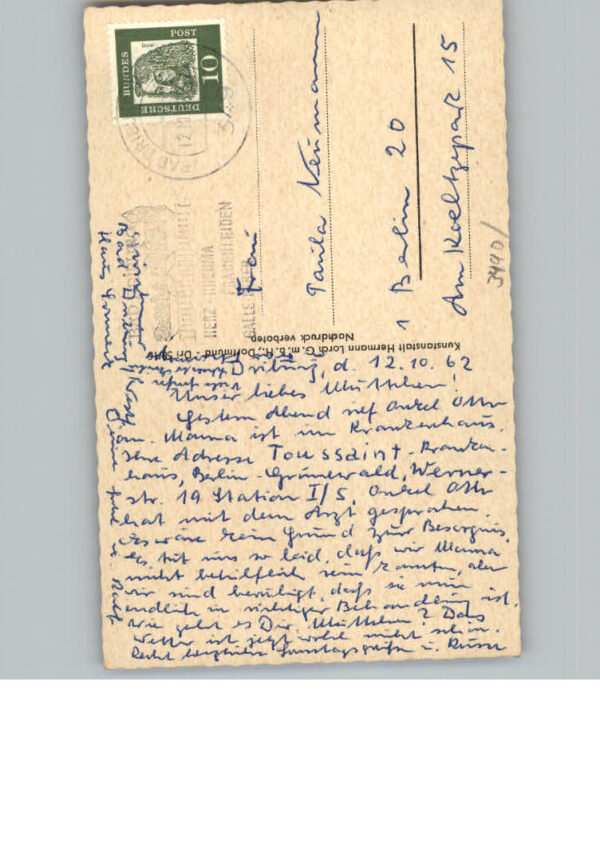 DEUTSCHE
BUNDES
POST
10
Dürer
12.10.
HERZ RHEUMA
FRAUENLEIDEN
GALLE
Frau
Paula Neumann
1 Berlin 20
Am Koeltzepark 15
3490/
Kunstanstalt Hermann Lorch G. m. b. H., Dortmund · Dri
Nachdruck verboten
Driburg, d. 12.10.62
Unser liebes Muttchen!
Gestern Abend rief Onkel Otto
an. Mama ist im Krankenhaus.
Ihre Adresse Toussaint-Kranken-
haus, Berlin-Grunewald, Werner-
str. 19 Station I/5. Onkel Otto
hat mit dem Arzt gesprochen.
Es wäre kein Grund zur Besorgnis.
Es tut uns so leid, daß wir Mama
nicht behilflich sein konnten, aber
wir sind beruhigt, daß sie nun
endlich in richtiger Behandlung ist.
Wie geht es Dir, Muttchen? Das
Wetter ist jetzt wohl nicht schön.
Recht herzliche Sonntagsgrüße u. Küsse
Bad Driburg
Haus